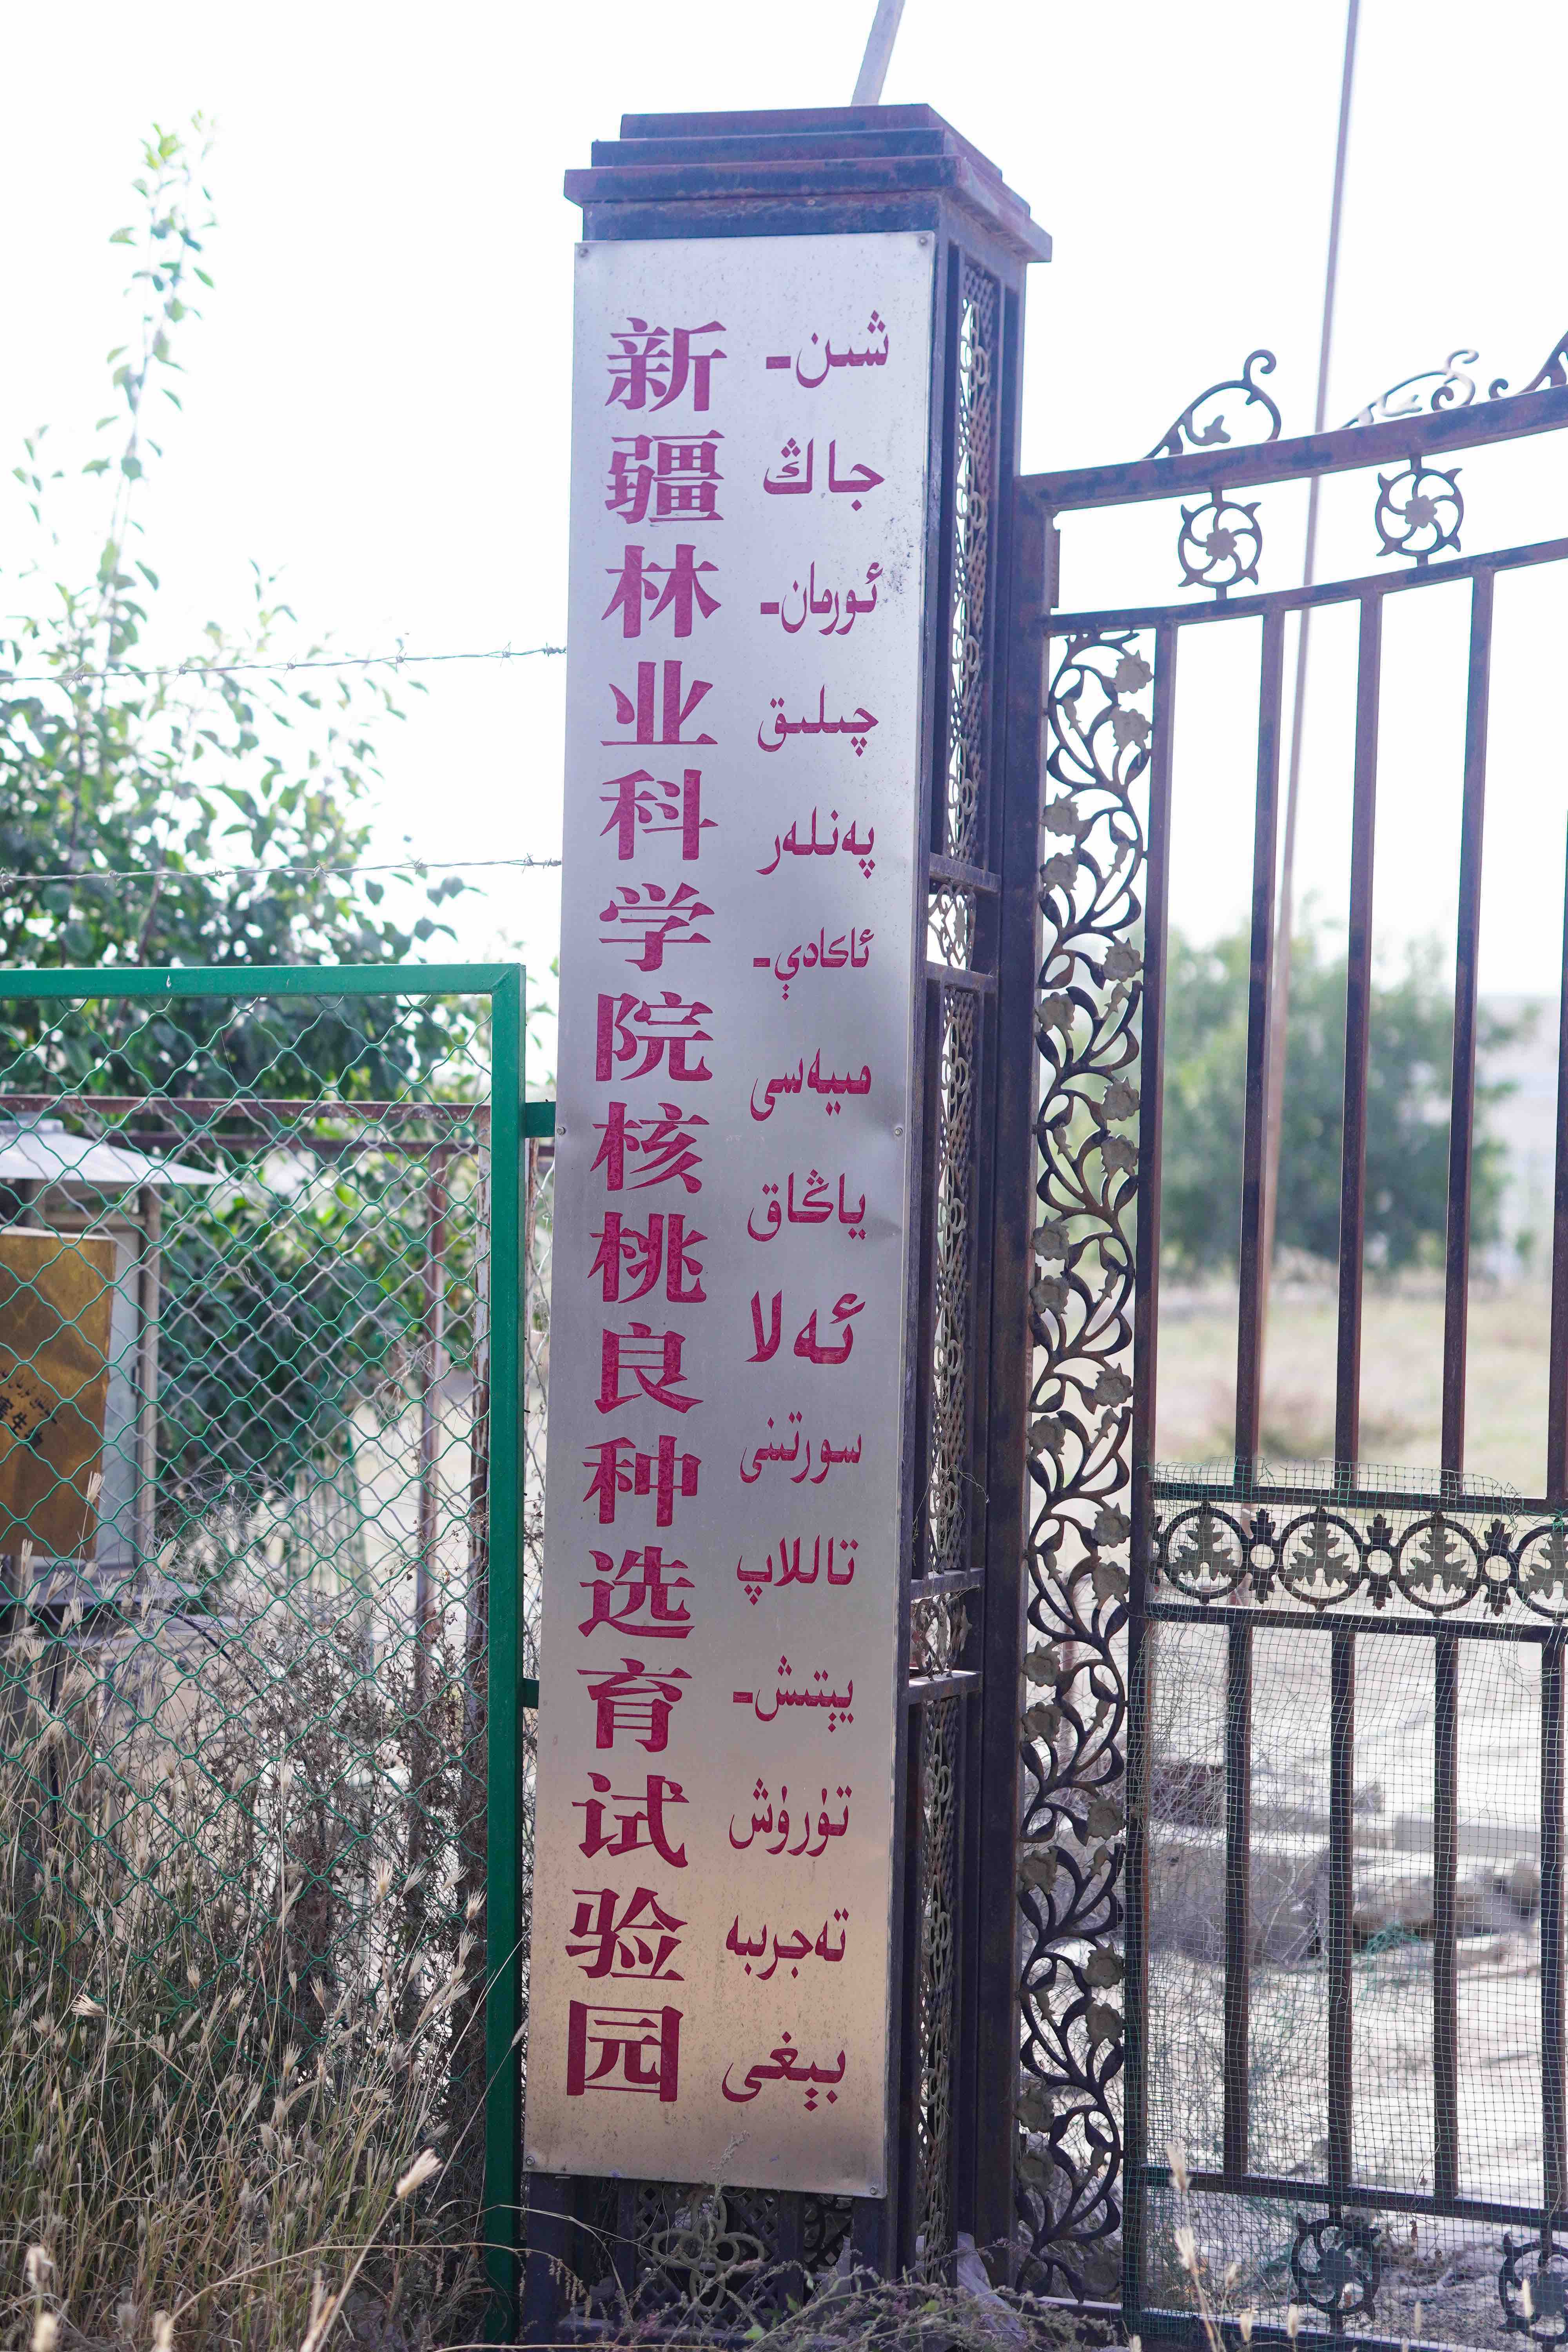 新疆林业科学院核桃良种选育试验园
شىن-
جاڭ
ئورمان-
چىلىق
پەنلەر
ئاكادې-
مىيەسى
ياڭاق
ئەلا
سورتىنى
تاللاپ
يېتىش-
تۈرۈش
تەجرىبە
بېغى